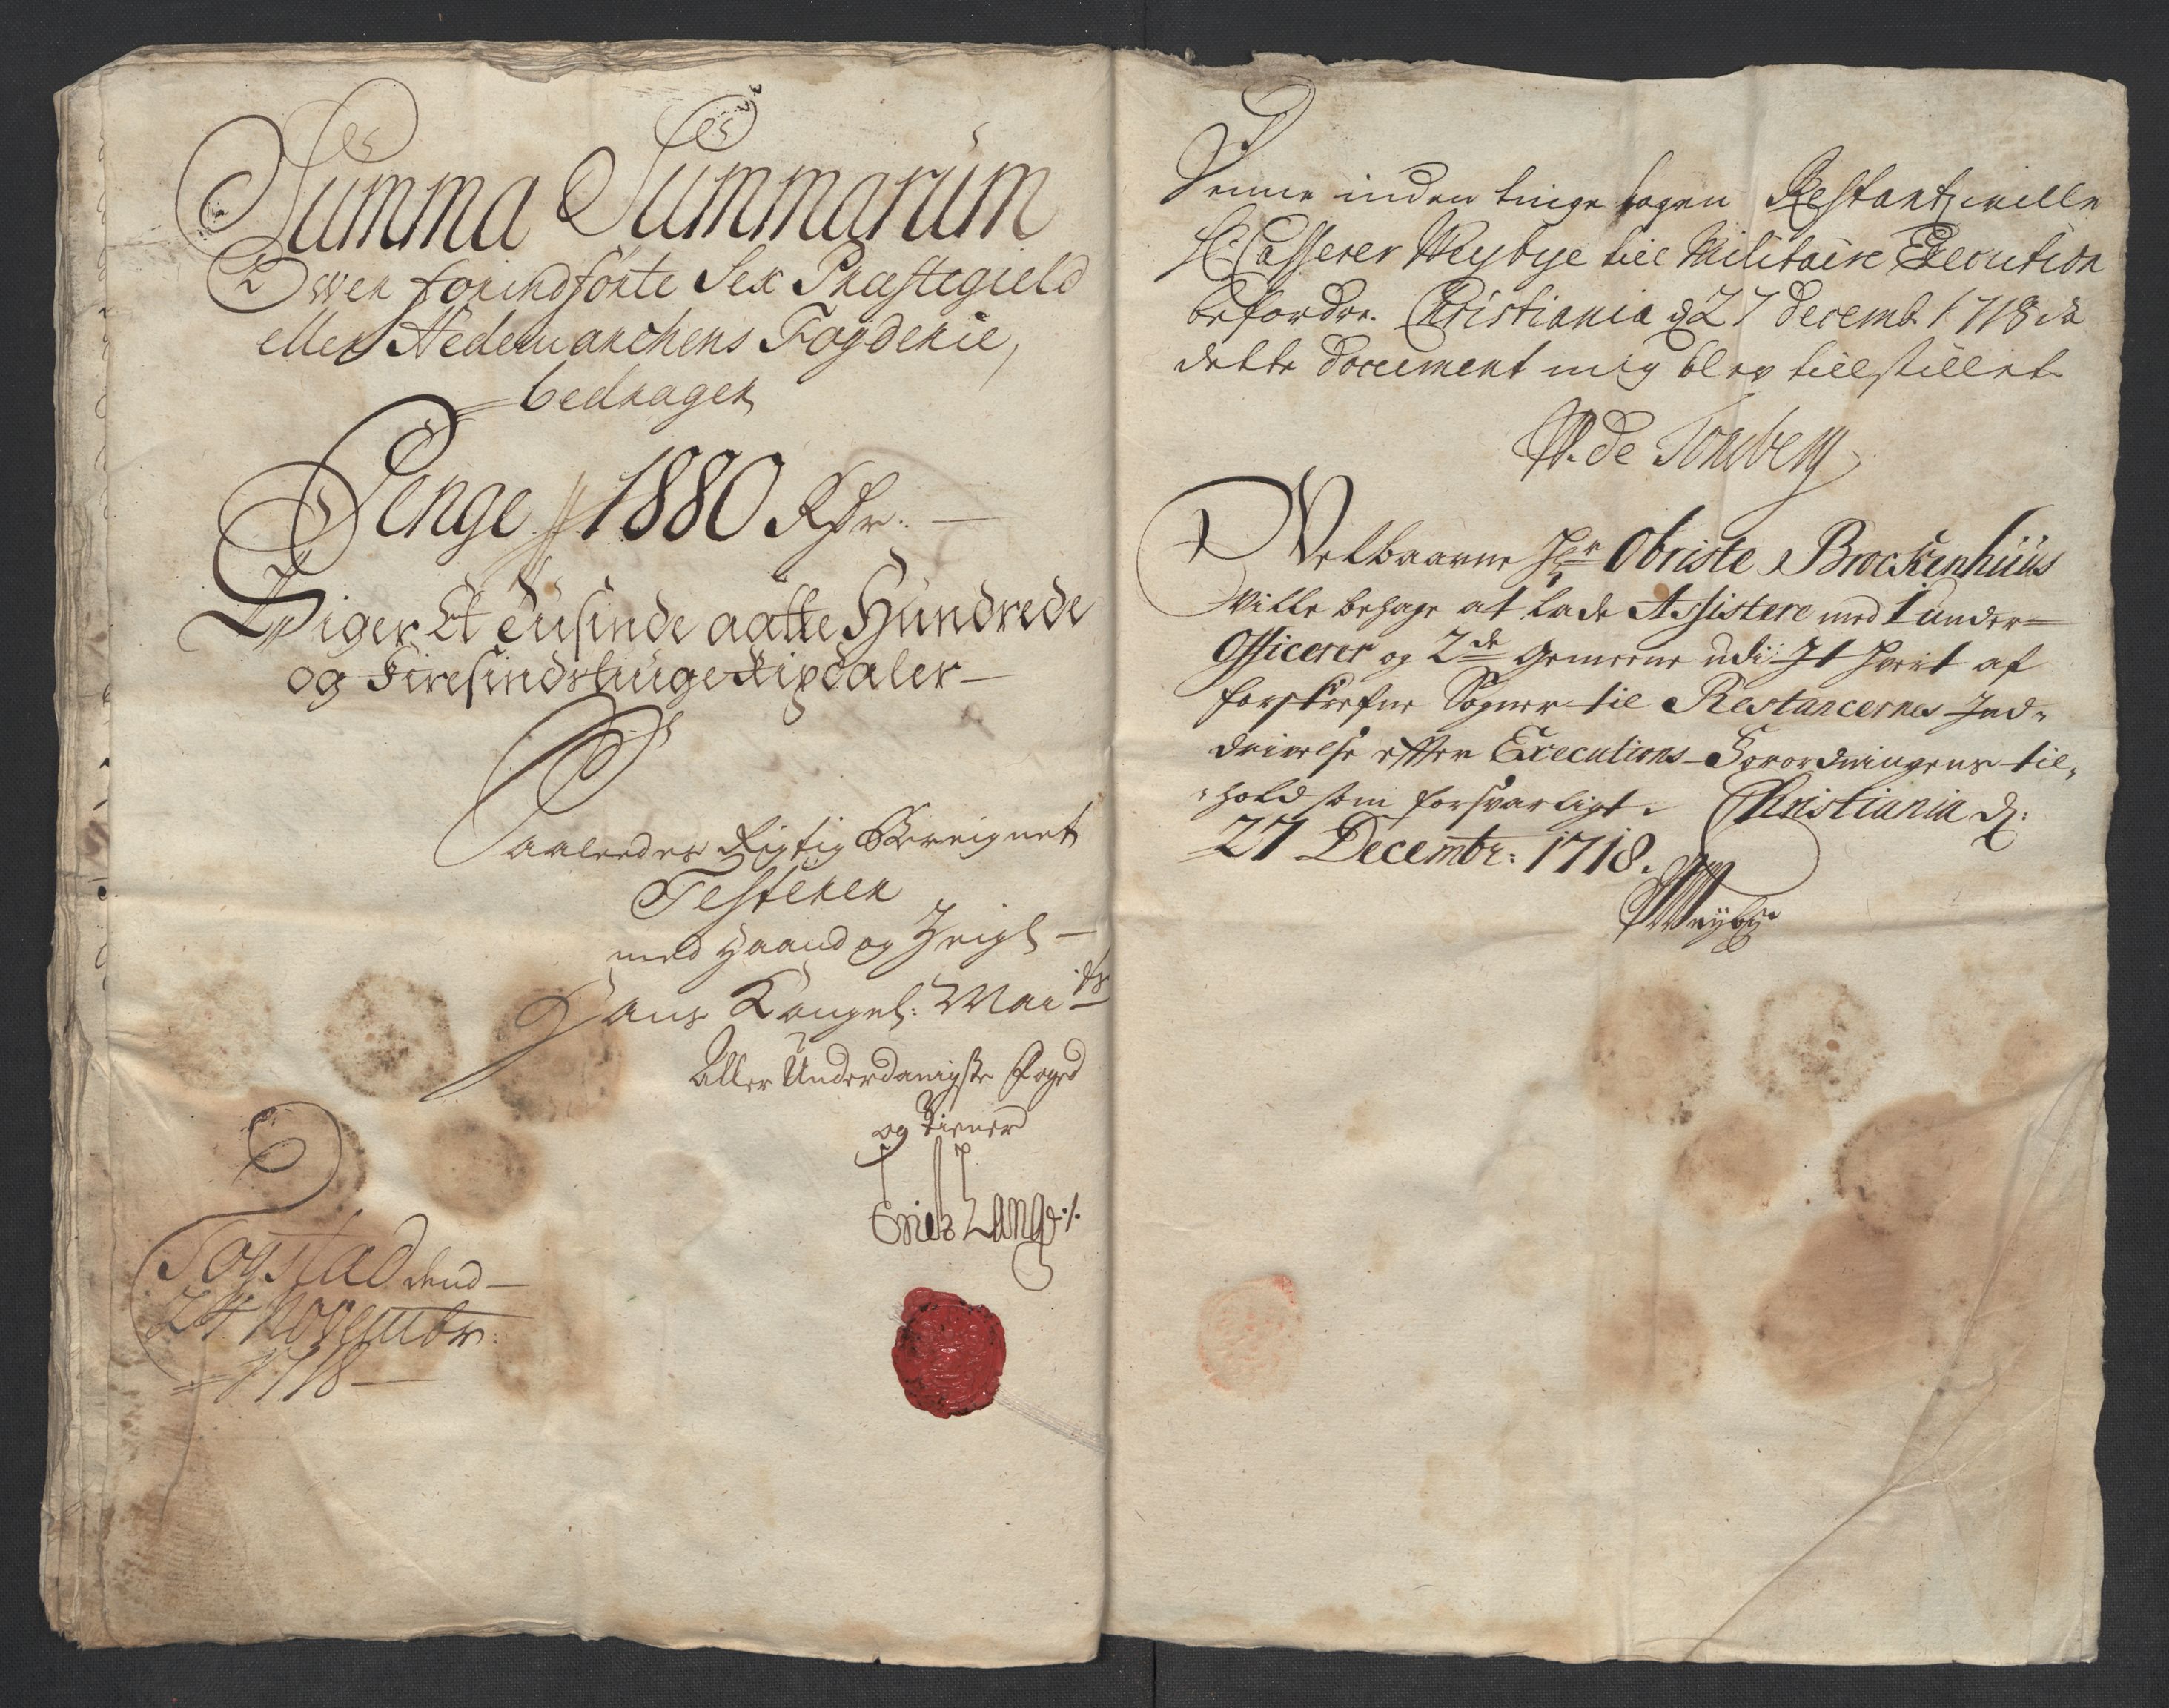 Summa Summarum
Over forindførte Sex Præstegield
eller Hedemarchens Fogderie,
bedrager
Penge 1880 Rdr.
Siger Et tusinde aatte Hundrede
og Firesindstiuge Rixdaler
Saaleedes Rigtig Bereignet
Testerer
med Haand og Zeigl
Hans Kongel: Mai:ts
Aller Underdanigste Foged
og Tiener
Erich Lange
Togstad dend
24 Novembr:
1718
Denne inden tinge tagen Restantz wille
H: Casserer Weybye till Militaire Execution
befordre. Christiania d 27 decemb. 1718 da
dette document mig blev tillstillet
W. de Tonsberg
Velbaarne Hr Obriste Brockenhuus
Wille behage at lade Assistere med 1 under
Officerer og 2de Gemeene udi It hvert af
forskrefne Sogner til Restancernes Ind,,
drivelse efter Executions Forordningens til,,
,,hold som forsvarligt. Christiania d:
27 Decembr: 1718.
Weybye